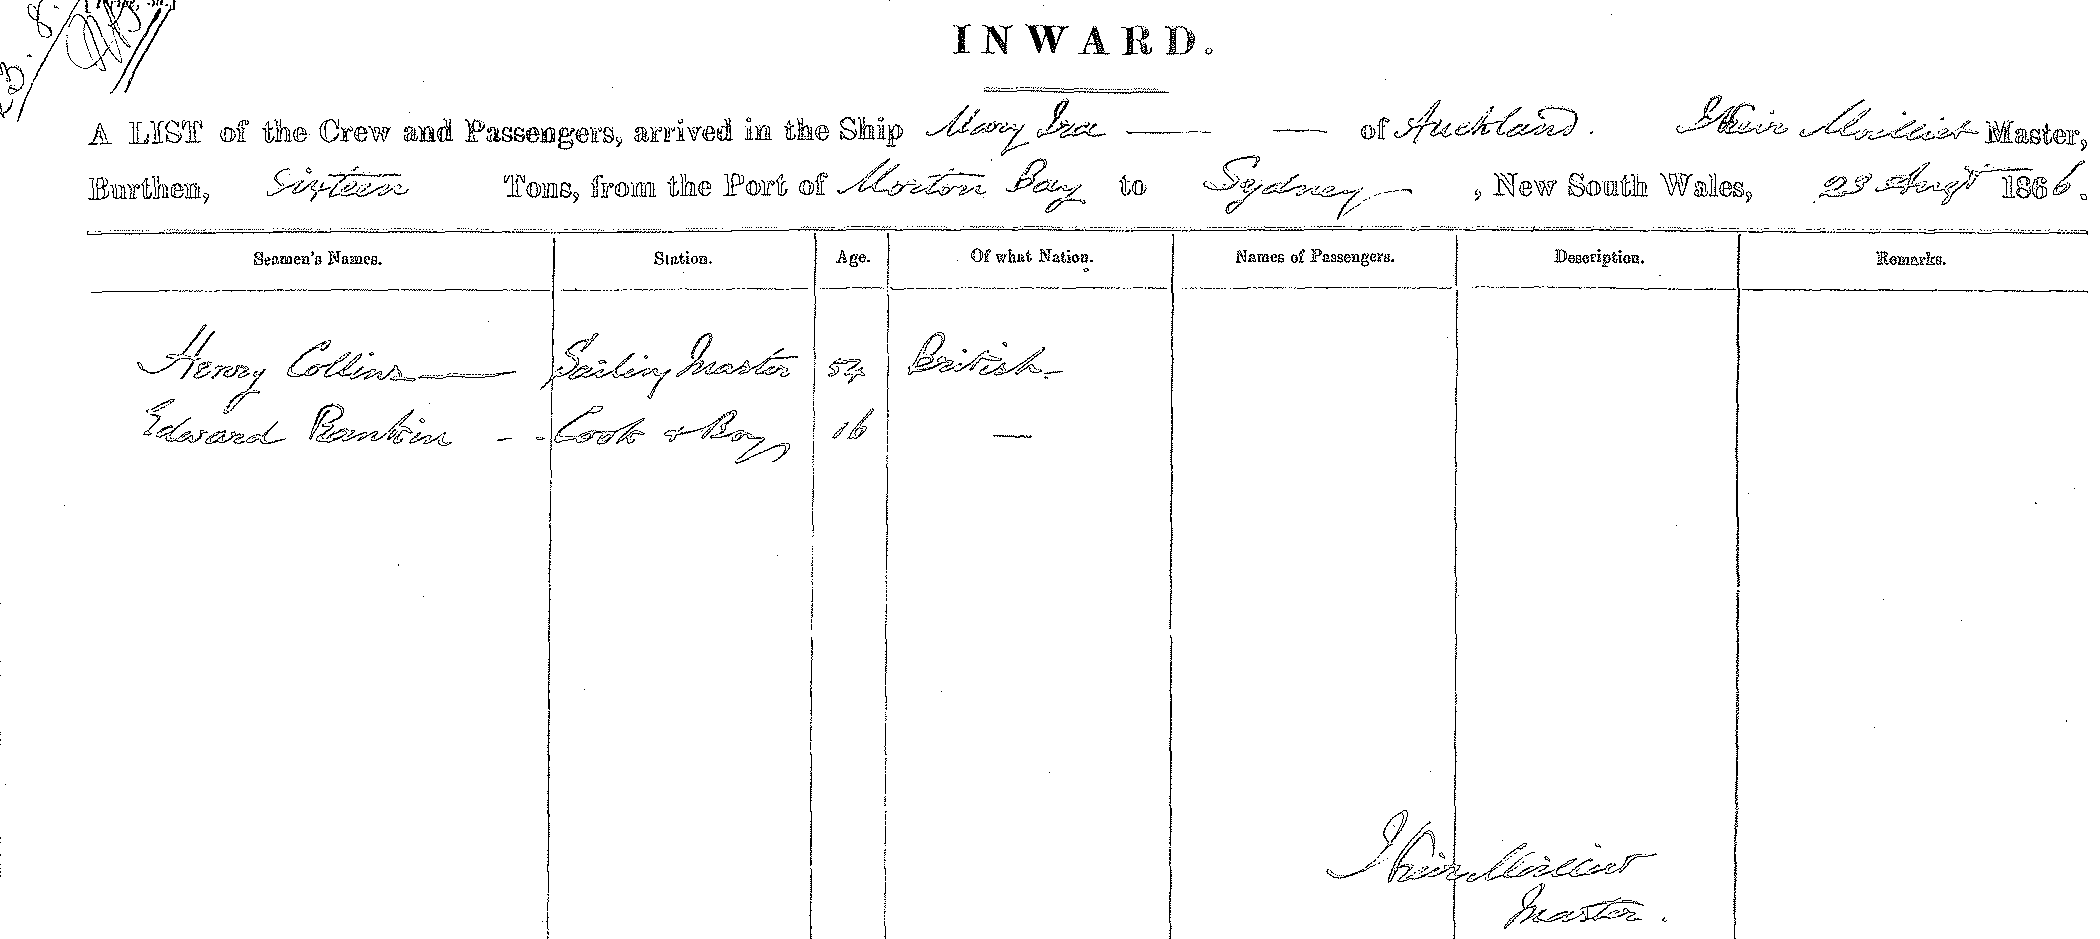 23. 8.
INWARD.
A LIST of the Crew and Passengers, arrived in the Ship Mary Ira — — of Auckland. Master,
Burthen, Sixteen Tons, from the Port of Morton Bay to Sydney , New South Wales, 23 Augt 1866.
Seamen's Names. Station. Age. Of what Nation. Names of Passengers. Description. Remarks.
Henry Collins — Sailing Master 54 British -
Edward Rankin - - Cook & Boy 16 —
Master.